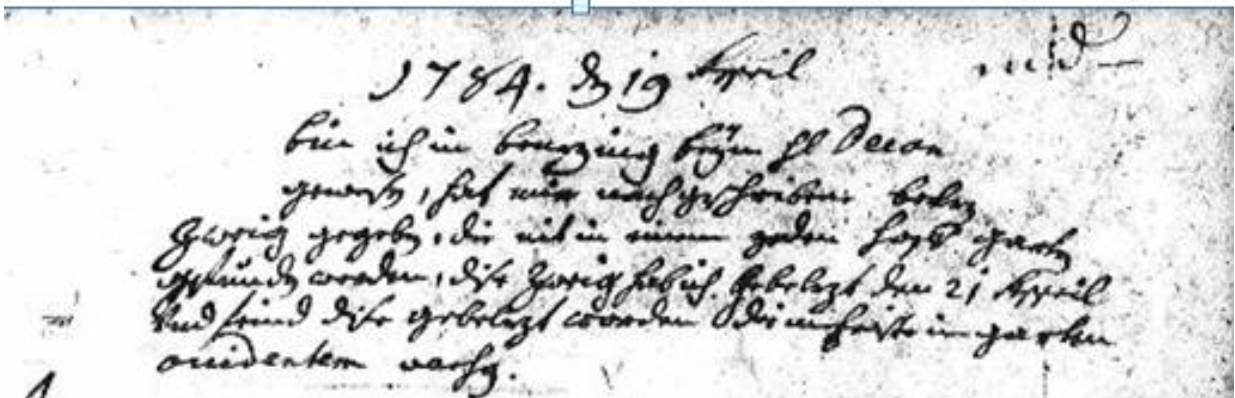 1784. den 19 April
bin ich in benzing beÿm hl Decan
gewest, hat mir nachgeschribene beltz
Zweig gegeben, die nit in einem jeden Hoffgarten
gefunden werden, dise Zweig hab ich gebeltzt den 21 April
Vnd seind dise gebeltzt worden die meiste im garten